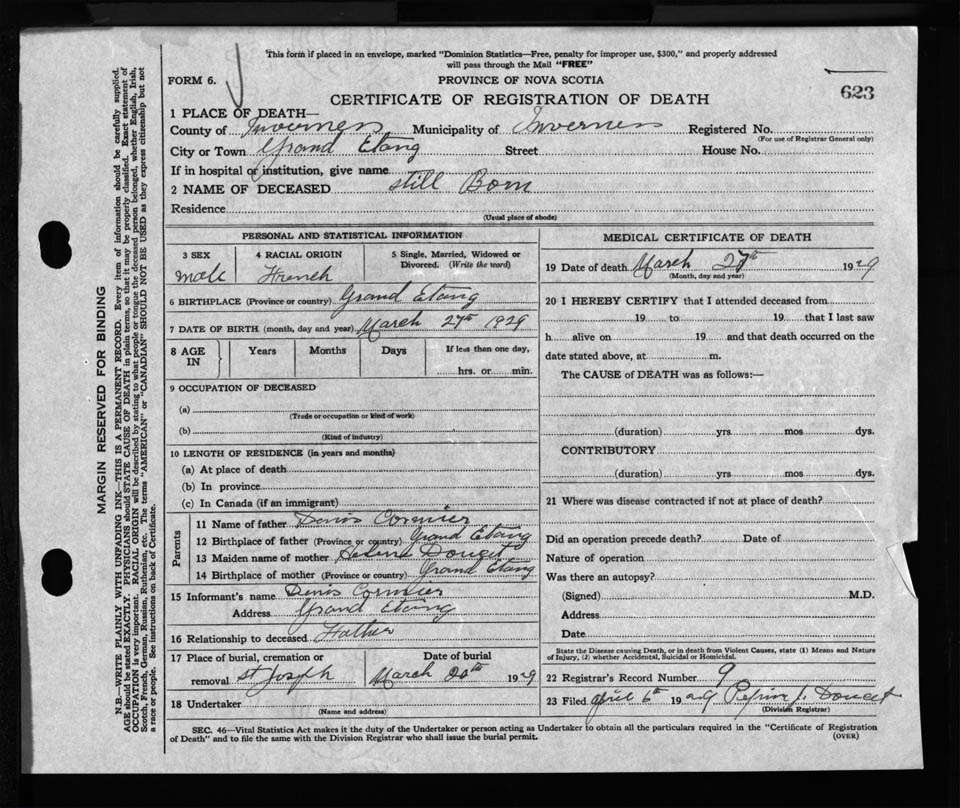 This form if placed in an envelope, marked "Dominion Statistics—Free, penalty for improper use, $300," and properly addressed
will pass through the Mail "FREE"
FORM 6.
PROVINCE OF NOVA SCOTIA
CERTIFICATE OF REGISTRATION OF DEATH
623
1 PLACE OF DEATH—
County of Inverness Municipality of Inverness Registered No.
(For use of Registrar General only)
City or Town Grand Etang Street House No.
If in hospital or institution, give name
2 NAME OF DECEASED still Born
Residence
(Usual place of abode)
PERSONAL AND STATISTICAL INFORMATION
3 SEX 4 RACIAL ORIGIN 5 Single, Married, Widowed or
Divorced. (Write the word)
male French
6 BIRTHPLACE (Province or country) Grand Etang
7 DATE OF BIRTH (month, day and year) March 27th 1929
8 AGE IN Years Months Days If less than one day,
hrs. or min.
9 OCCUPATION OF DECEASED
(a)
(Trade or occupation or kind of work)
(b)
(Kind of industry)
10 LENGTH OF RESIDENCE (in years and months)
(a) At place of death
(b) In province
(c) In Canada (if an immigrant)
Parents
11 Name of father Denis Cormier
12 Birthplace of father (Province or country) Grand Etang
13 Maiden name of mother Helene Doucet
14 Birthplace of mother (Province or country) Grand Etang
15 Informant's name Denis Cormier
Address Grand Etang
16 Relationship to deceased Father
17 Place of burial, cremation or Date of burial
removal St Joseph March 1929
18 Undertaker
(Name and address)
MEDICAL CERTIFICATE OF DEATH
19 Date of death March 27th 1929
(Month, day and year)
20 I HEREBY CERTIFY that I attended deceased from
19 to 19 that I last saw
h alive on 19 and that death occurred on the
date stated above, at m.
The CAUSE of DEATH was as follows:—
(duration) yrs mos dys.
CONTRIBUTORY
(duration) yrs mos dys.
21 Where was disease contracted if not at place of death?
Did an operation precede death? Date of
Nature of operation
Was there an autopsy?
(Signed) M.D.
Address
Date
State the Disease causing Death, or in death from Violent Causes, state (1) Means and Nature
of Injury, (2) whether Accidental, Suicidal or Homicidal.
22 Registrar's Record Number 9
23 Filed April 6th 1929 J. Doucet
(Division Registrar)
SEC. 46—Vital Statistics Act makes it the duty of the Undertaker or person acting as Undertaker to obtain all the particulars required in the "Certificate of Registration
of Death" and to file the same with the Division Registrar who shall issue the burial permit.
(OVER)
MARGIN RESERVED FOR BINDING
N.B.—WRITE PLAINLY WITH UNFADING INK—THIS IS A PERMANENT RECORD. Every item of information should be carefully supplied.
AGE should be stated EXACTLY. PHYSICIANS should STATE CAUSE OF DEATH in plain terms, so that it may be properly classified. Exact statement of
OCCUPATION is very important. RACIAL ORIGIN will be described by stating to what people or tongue the deceased person belonged, whether English, Irish,
Scotch, French, German, Russian, Ruthenian, etc. The terms "AMERICAN" or "CANADIAN" SHOULD NOT BE USED as they express citizenship but not
a race or people. See instructions on back of Certificate.